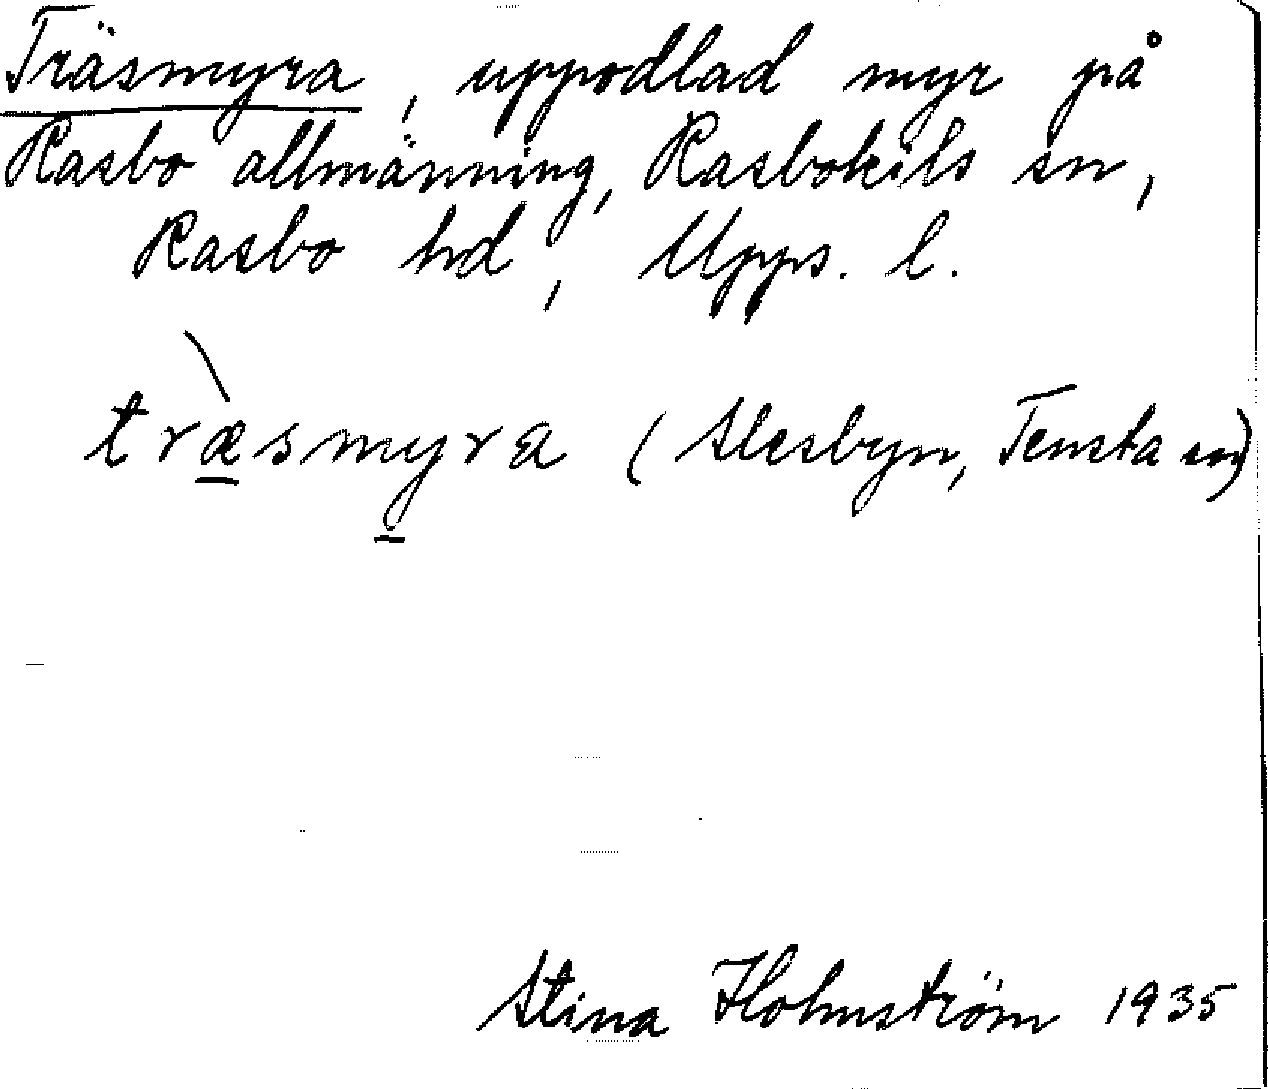 Träsmyra, uppodlad myr på
Rasbo allmänning, Rasbokils sn,
Rasbo hd, Upps. l.
træ̀smyra (Alesbyn, Tensta sn)
Stina Holmström 1935